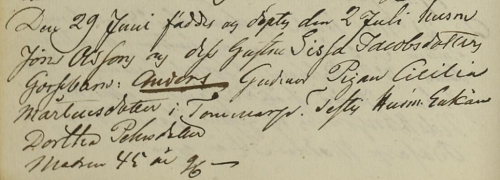 Den 29 Juni föddes og döpty den 2 Juli husm
Jöns Olssons og dess hustru Sissa Jacobsdotters
Gossebarn: Anders Gudmor Pigan Cicilia
Mårtensdotter i Tommarp. Testes Husm: Enkan
Dortha Pehrsdotter
Modren 45 år